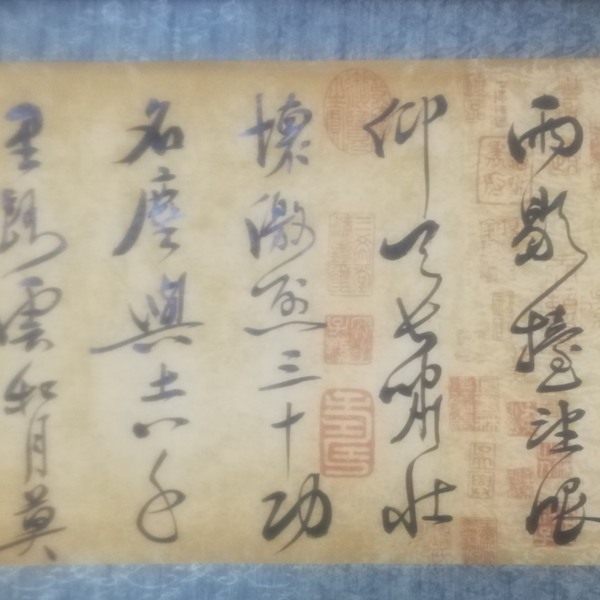 雨歇擡望眼
仰天長嘯壯
懷激烈三十功
名塵與土八千
里路雲和月莫